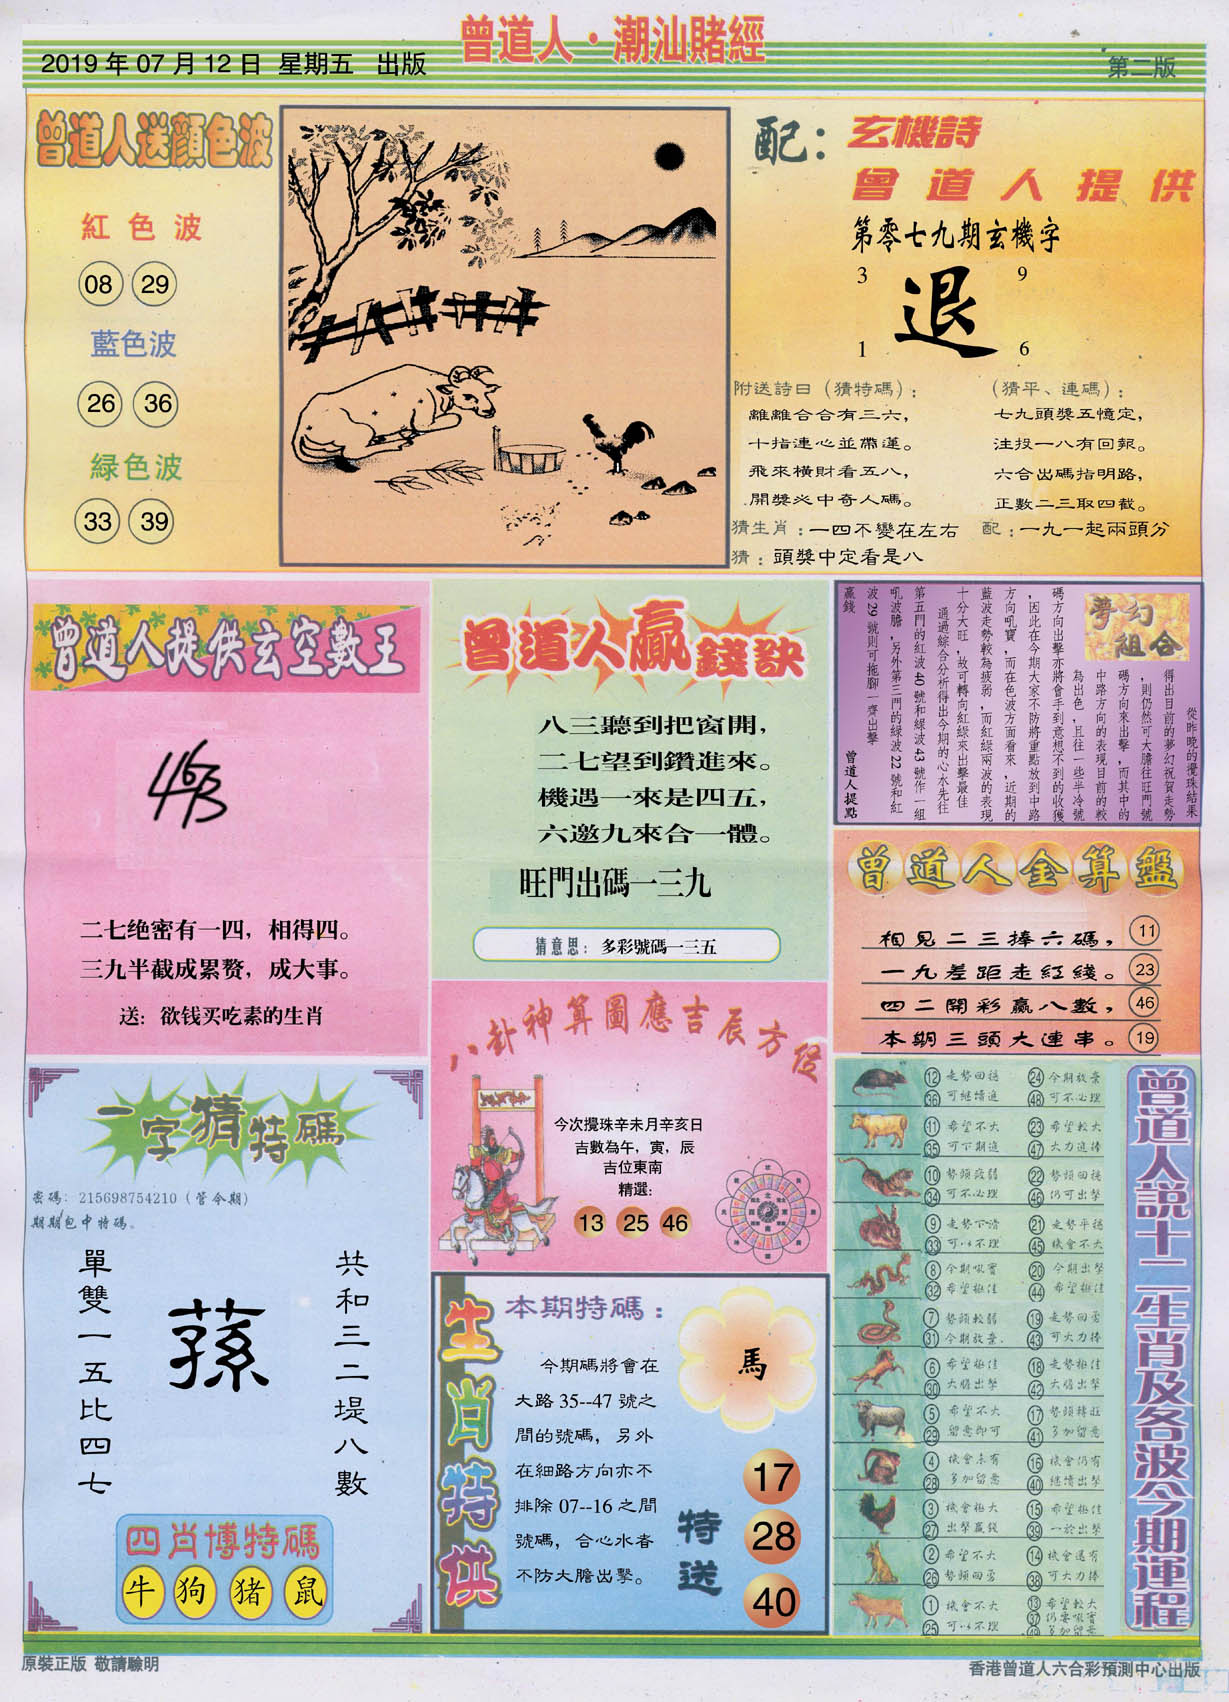 曾道人·潮汕賭經
2019年07月12日 星期五 出版
第二版
曾道人送顏色波
紅色波
08 29
藍色波
26 36
緑色波
33 39
配：玄機詩
曾道人提供
第零七九期玄機字
3 9
退
1 6
附送詩曰（猜特碼）：
離離合合有三六，
十指連心並帶蓮。
飛來橫財看五八，
開獎必中奇人碼。
（猜平、連碼）：
七九頭獎五憶定，
注投一八有回報。
六合出碼指明路，
正數二三取四截。
猜生肖：一四不變在左右
配：一九一起兩頭分
猜：頭獎中定看是八
曾道人提供玄空數王
463
二七绝密有一四，相得四。
三九半截成累赘，成大事。
送：欲钱买吃素的生肖
曾道人贏錢訣
八三聽到把窗開，
二七望到鑽進來。
機遇一來是四五，
六邀九來合一體。
旺門出碼一三九
猜意思：多彩號碼一三五
夢幻
組合
從昨晚的攪珠結果
得出目前的夢幻祝賀走勢
，則仍然可大膽往旺門號
碼方向來出擊，而其中的
中路方向的表現目前的較
為出色，且往一些半冷號
碼方向出擊亦將會手到意想不到的收獲
，因此在今期大家不防將重點放到中路
方向吼寶，而在色波方面看來，近期的
藍波走勢較為疲弱，而紅綠兩波的表現
十分大旺，故可轉向紅綠來出擊最佳
通過綜合分析得出今期的心水先往
第五門的紅波40號和綠波43號作一組
吼波膽，另外第三門的綠波22號和紅
波29號則可拖腳一齊出擊
贏錢
曾道人提點
曾道人金算盤
相見二三捧六碼， 11
一九差距走紅綫。 23
四二開彩贏八數， 46
本期三頭大連串。 19
八卦神算圖應吉辰方位
今次攪珠辛未月辛亥日
吉數為午，寅，辰
吉位東南
精選：
13 25 46
一字猜特碼
密碼：215698754210（管令期）
期期包中特碼。
單雙一五比四七
蓀
共和三二堤八數
四肖博特碼
牛 狗 猪 鼠
生肖特供
本期特碼：
今期碼將會在
大路35--47號之
間的號碼，另外
在細路方向亦不
排除07--16之間
號碼，合心水者
不防大膽出擊。
馬
特送
17
28
40
曾道人説十二生肖及各波今期運程
12 走勢回穩 24 今期放棄
36 可繼續進 48 可不必理
11 希望不大 23 希望較大
35 可下期進 47 大力進捧
10 勢頭疲弱 22 勢頭回穩
34 可不必理 46 仍可出擊
9 走勢下滑 21 走勢平穩
33 可以不理 45 機會不大
8 今期吼寶 20 今期出擊
32 希望極佳 44 希望極佳
7 勢頭較弱 19 走勢回勇
31 今期放棄. 43 可大力捧
6 希望極佳 18 走勢極佳
30 大膽出擊 42 大膽出擊
5 希望不大 17 勢頭轉旺
29 留意即可 41 多加留意
4 機會未有 16 機會仍有
28 多加留意 40 繼續出擊
3 機會極大 15 希望極佳
27 出擊贏錢 39 一於出擊
2 希望不大 14 機會還有
26 勢頭回勇 38 可大力捧
1 機會不大 13 希望較大
25 可以不理 37 仍要吼寶
49 多加留意
原裝正版 敬請驗明
香港曾道人六合彩預測中心出版